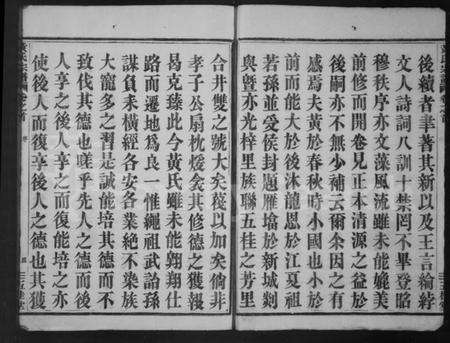 後續者聿著其新以及王言綸綍
文人詩詞八訓十禁罔不畢登略
穆秩序亦文藻風流雖未能媲美
前修而開卷見正本清源之益於
後嗣亦不無少補云爾余因之有
感焉夫黃於春秋時小國也小於
前而能大於後沐龍恩於江夏相
若孫並受侯封題雁塔於新城剡
與暨亦光梓里族聯五桂之芳里
合井雙之號大矣蔑以加矣倘非
孝子公扇枕煖衾其修德之獲報
曷克臻此今黃氏雖未能翱翔仕
路而遷地爲良一惟繩祖武詒孫
謀負耒橫經各安各業絕不染族
大寵多之習是誠能培其德而不
致伐其德也嗟乎先人之德而後
人享之後人享之而復能培之亦
使後人而復享後人之德也其獲